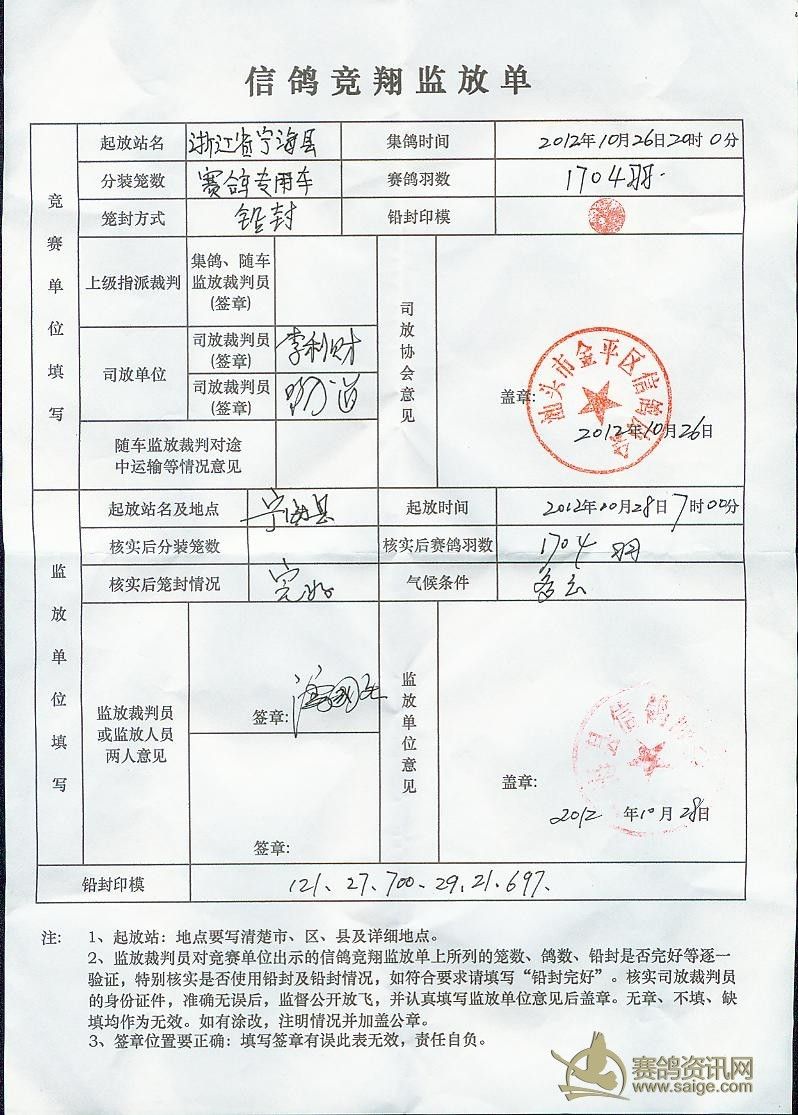 信鸽竞翔监放单
竞赛单位填写
起放站名 浙江省宁海县 集鸽时间 2012年10月26日20时0分
分装笼数 赛鸽专用车 赛鸽羽数 1704羽.
笼封方式 铅封 铅封印模
上级指派裁判 集鸽、随车监放裁判员(签章)
司放单位 司放裁判员(签章) 李利财
司放裁判员(签章)
司放协会意见
汕头市金平区信鸽协会
盖章:
2012年10月26日
随车监放裁判对途中运输等情况意见
监放单位填写
起放站名及地点 宁海县 起放时间 2012年10月28日7时00分
核实后分装笼数 核实后赛鸽羽数 1704 羽
核实后笼封情况 完好 气候条件 多云
监放裁判员或监放人员两人意见
签章:
签章:
监放单位意见
县信鸽
盖章:
2012 年10月28日
铅封印模 121、27、700、29、21、697、
注: 1、起放站：地点要写清楚市、区、县及详细地点。
2、监放裁判员对竞赛单位出示的信鸽竞翔监放单上所列的笼数、鸽数、铅封是否完好等逐一
验证，特别核实是否使用铅封及铅封情况，如符合要求请填写“铅封完好”。核实司放裁判员
的身份证件，准确无误后，监督公开放飞，并认真填写监放单位意见后盖章。无章、不填、缺
填均作为无效。如有涂改，注明情况并加盖公章。
3、签章位置要正确：填写签章有误此表无效，责任自负。
赛鸽资讯网
www.saige.com